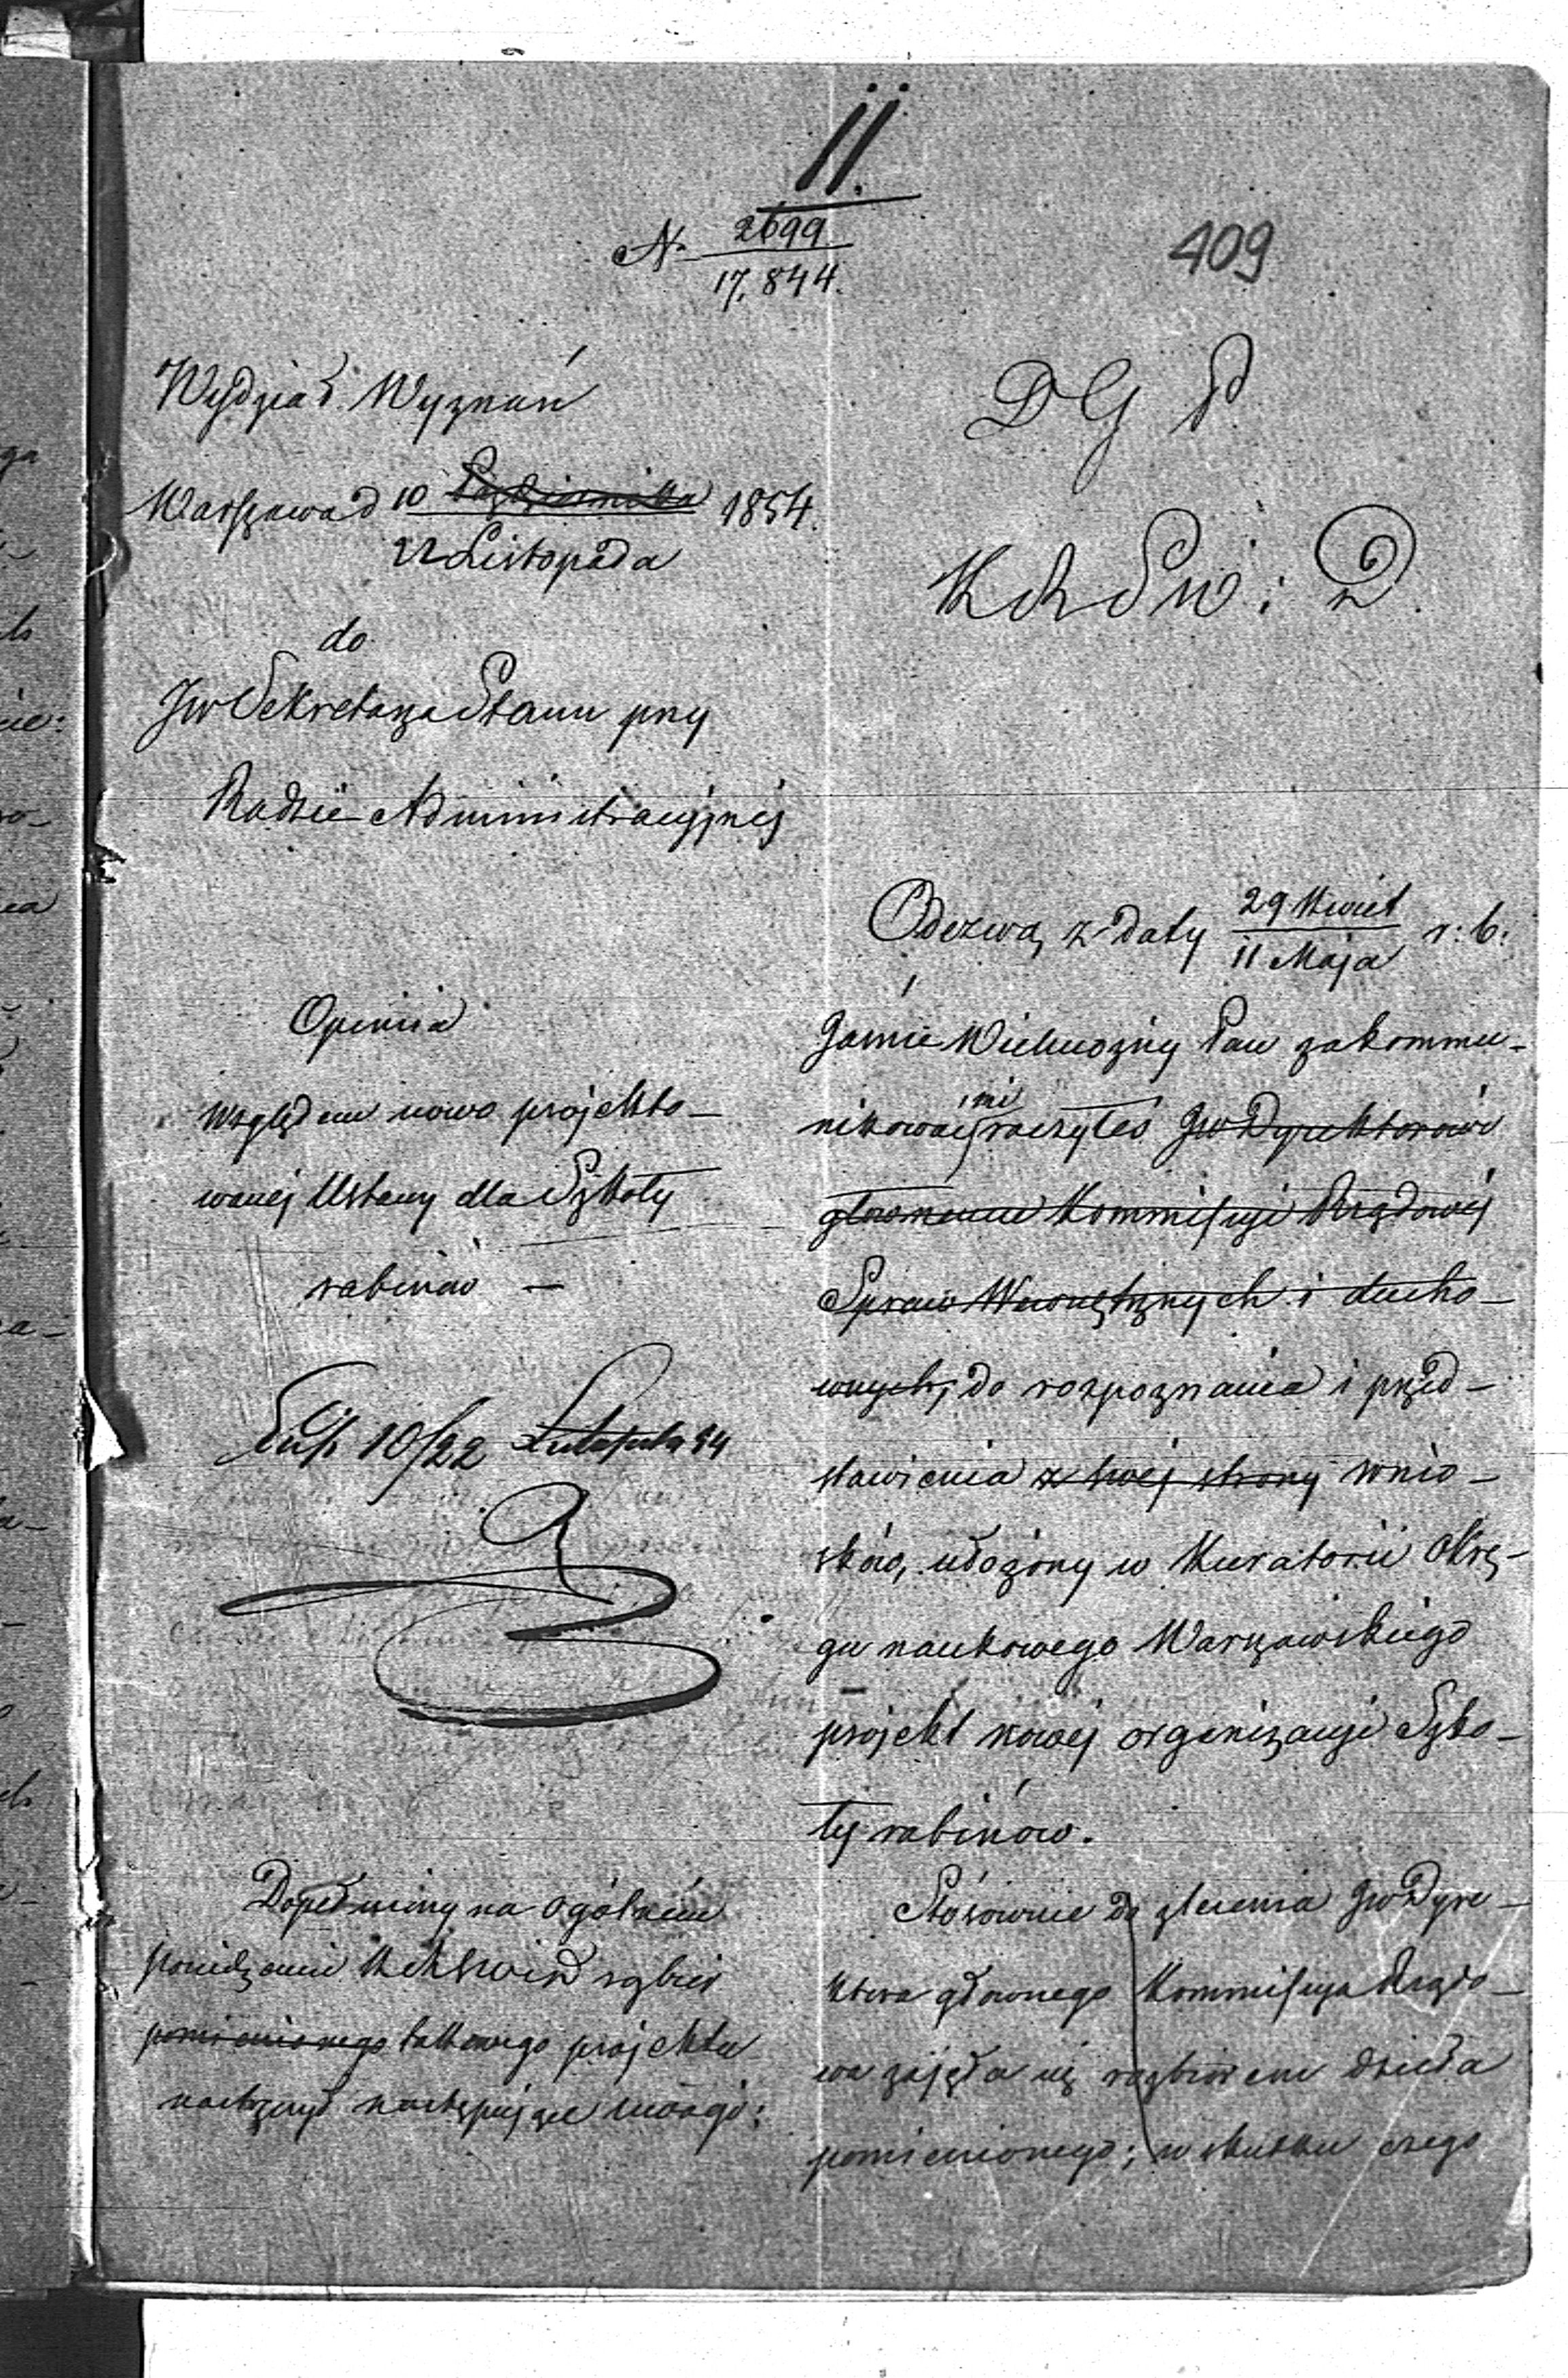 11.
N. 2699
17,844.
409
Wydział Wyznań
Warszawa d 10 Października 1854.
22 Listopada
do
JW Sekretarza Stanu przy
Radzie Administracyjnéj
Opinia
względem nowo projekto-
wanéj Ustawy dla Szkoły
rabinów —
10/22 Listopada 54
Dopełniony na ogólném
posiedzeniu KRSWiD rozbiór
pomienionego takowego projektu
nastręczył następujące uwagi:
D G P
K R S W : D.
Odezwą z daty 29 Kwiet r: b:
11 Maja
Jaśnie Wielmożny Pan zakommu-
mi
nikować raczyłeś JW Dyrektorowi
głównemu Kommissyi Rządowéj
Spraw Wewnętrznych i ducho-
wnych, do rozpoznania i przed-
stawienia z swéj strony wnio-
sków, ułożony w Kuratorii Okrę-
gu naukowego Warszawskiego
projekt nowéj organizacyi Szko-
ły rabinów.
Stósownie do zlecenia JW Dyre-
ktora głównego Kommissya Rządo-
wa zajęła się rozbiorem dzieła
pomienionego; w skutku czego